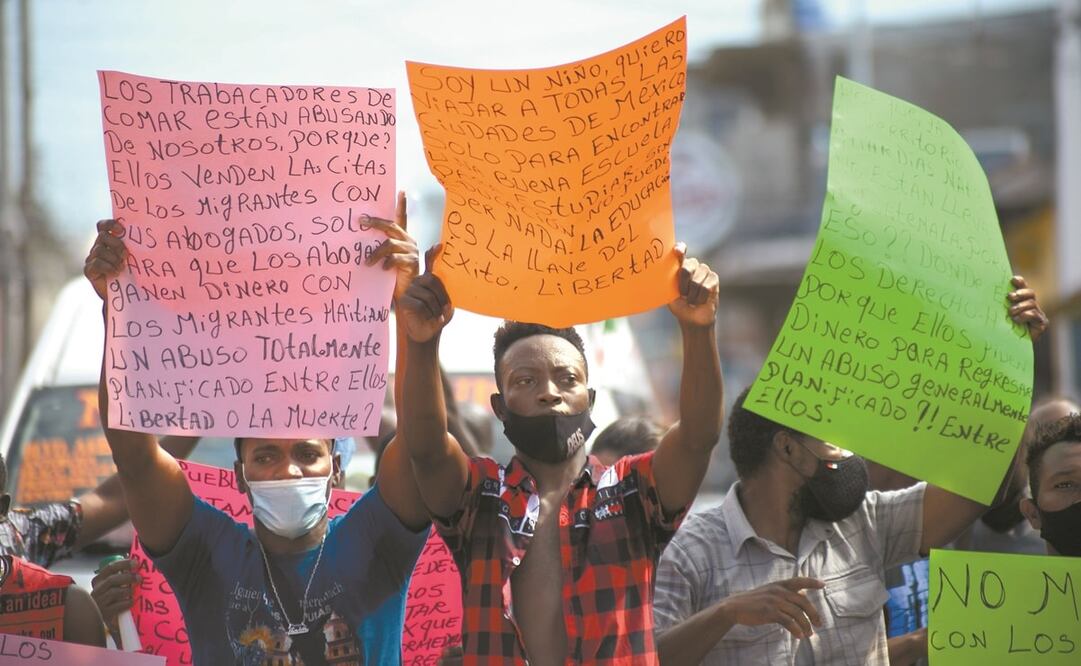 LOS TRABACADORES DE
COMAR ESTÁN ABUSANDO
DE NOSOTROS, PORQUE?
ELLOS VENDEN LAS CITAS
DE LOS MIGRANTES CON
SUS ABOGADOS, SOLO
PARA QUE LOS ABOGA
GANEN DINERO CON
LOS MIGRANTES HAITIANO
UN ABUSO TOTALMENTE
PLANIFICADO ENTRE ELLOS
LIBERTAD O LA MUERTE?
SOY UN NIÑO, QUIERO
VIAJAR A TODAS LAS
CIUDADES DE MEXICO
SOLO PARA ENCONTRAR
UNA BUENA ESCUELA
ESTUDIAR, SIN
NO PUEDO
SER NADA. LA EDUCACION
ES LA LLAVE DEL
EXITO, LIBERTAD
TERRITORIO
GUARDIAS NA
ESTÁN LLEV
GUATEMALA, POR
ESO?? DONDE E
LOS DERECHO H
PORQUE ELLOS PIDEN
DINERO PARA REGRESAR
UN ABUSO GENERALMENTE
PLANIFICADO!! ENTRE
ELLOS.
PUEBL
DEUS
an ideal
NO M
CON LOS
LOS